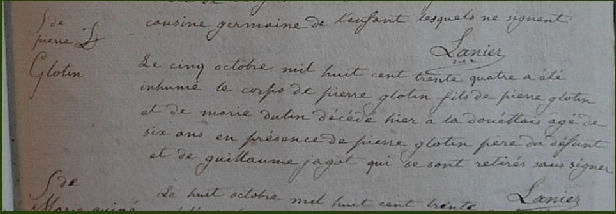 cousine germaine de l'enfant lesquels ne signent
Lanier
S de
pierre
Glotin
Le cinq octobre mil huit cent trente quatre a été
inhumé le corps de pierre glotin fils de pierre glotin
et de marie dutin décédé hier a la douettais agé de
six ans en présence de pierre glotin pere du défunt
et de guillaume jagot qui se sont retirés sans signer
Lanier
S de
Marie
Le huit octobre mil huit cent trente